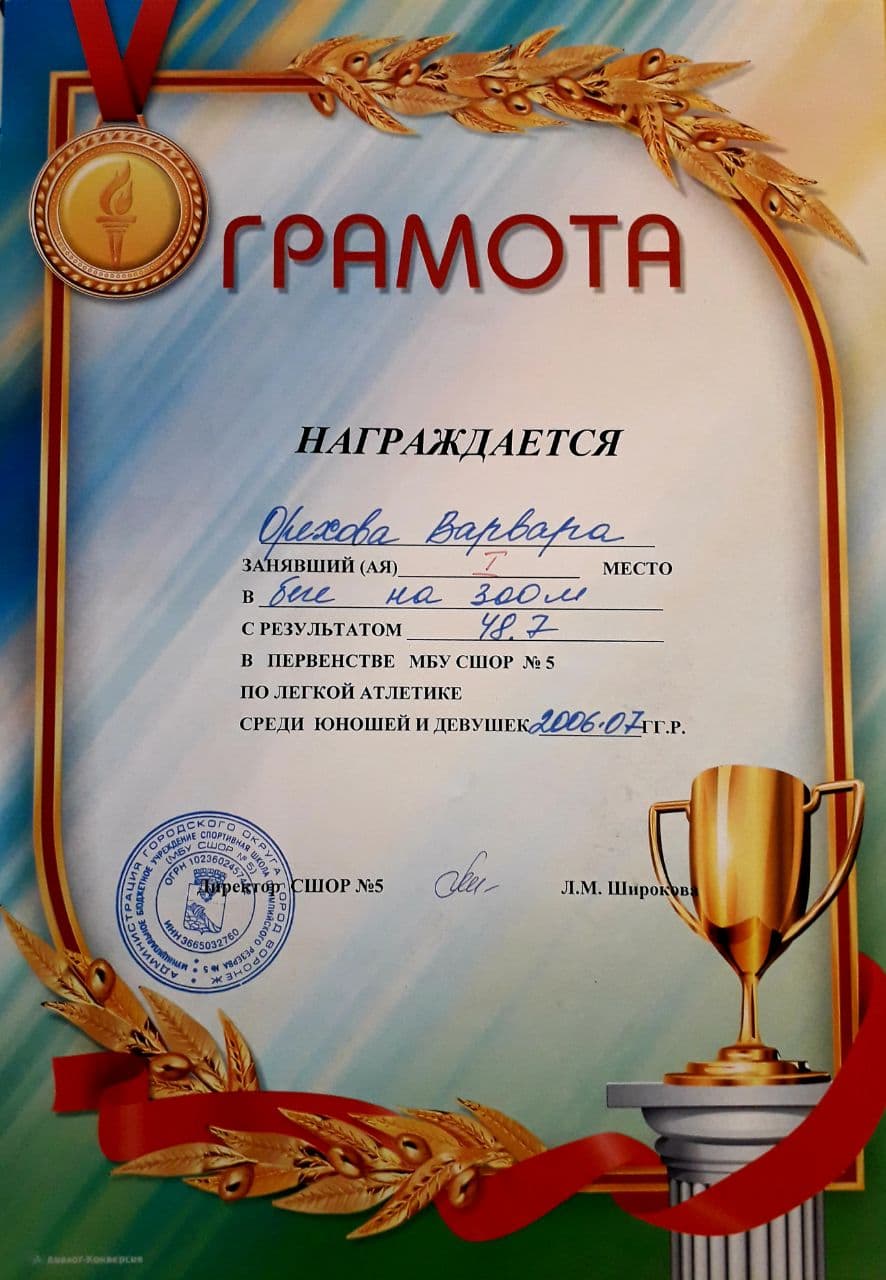 ГРАМОТА
НАГРАЖДАЕТСЯ
Орехова Варвара
ЗАНЯВШИЙ (АЯ) I МЕСТО
В беге на 300м
С РЕЗУЛЬТАТОМ 48.7
В ПЕРВЕНСТВЕ МБУ СШОР № 5
ПО ЛЕГКОЙ АТЛЕТИКЕ
СРЕДИ ЮНОШЕЙ И ДЕВУШЕК 2006-07 ГГ.Р.
АДМИНИСТРАЦИЯ ГОРОДСКОГО ОКРУГА ГОРОД ВОРОНЕЖ
МУНИЦИПАЛЬНОЕ БЮДЖЕТНОЕ УЧРЕЖДЕНИЕ СПОРТИВНАЯ ШКОЛА ОЛИМПИЙСКОГО РЕЗЕРВА № 5
(МБУ СШОР № 5)
ОГРН
ИНН 3665032760
Директор СШОР №5 Л.М. Широкова